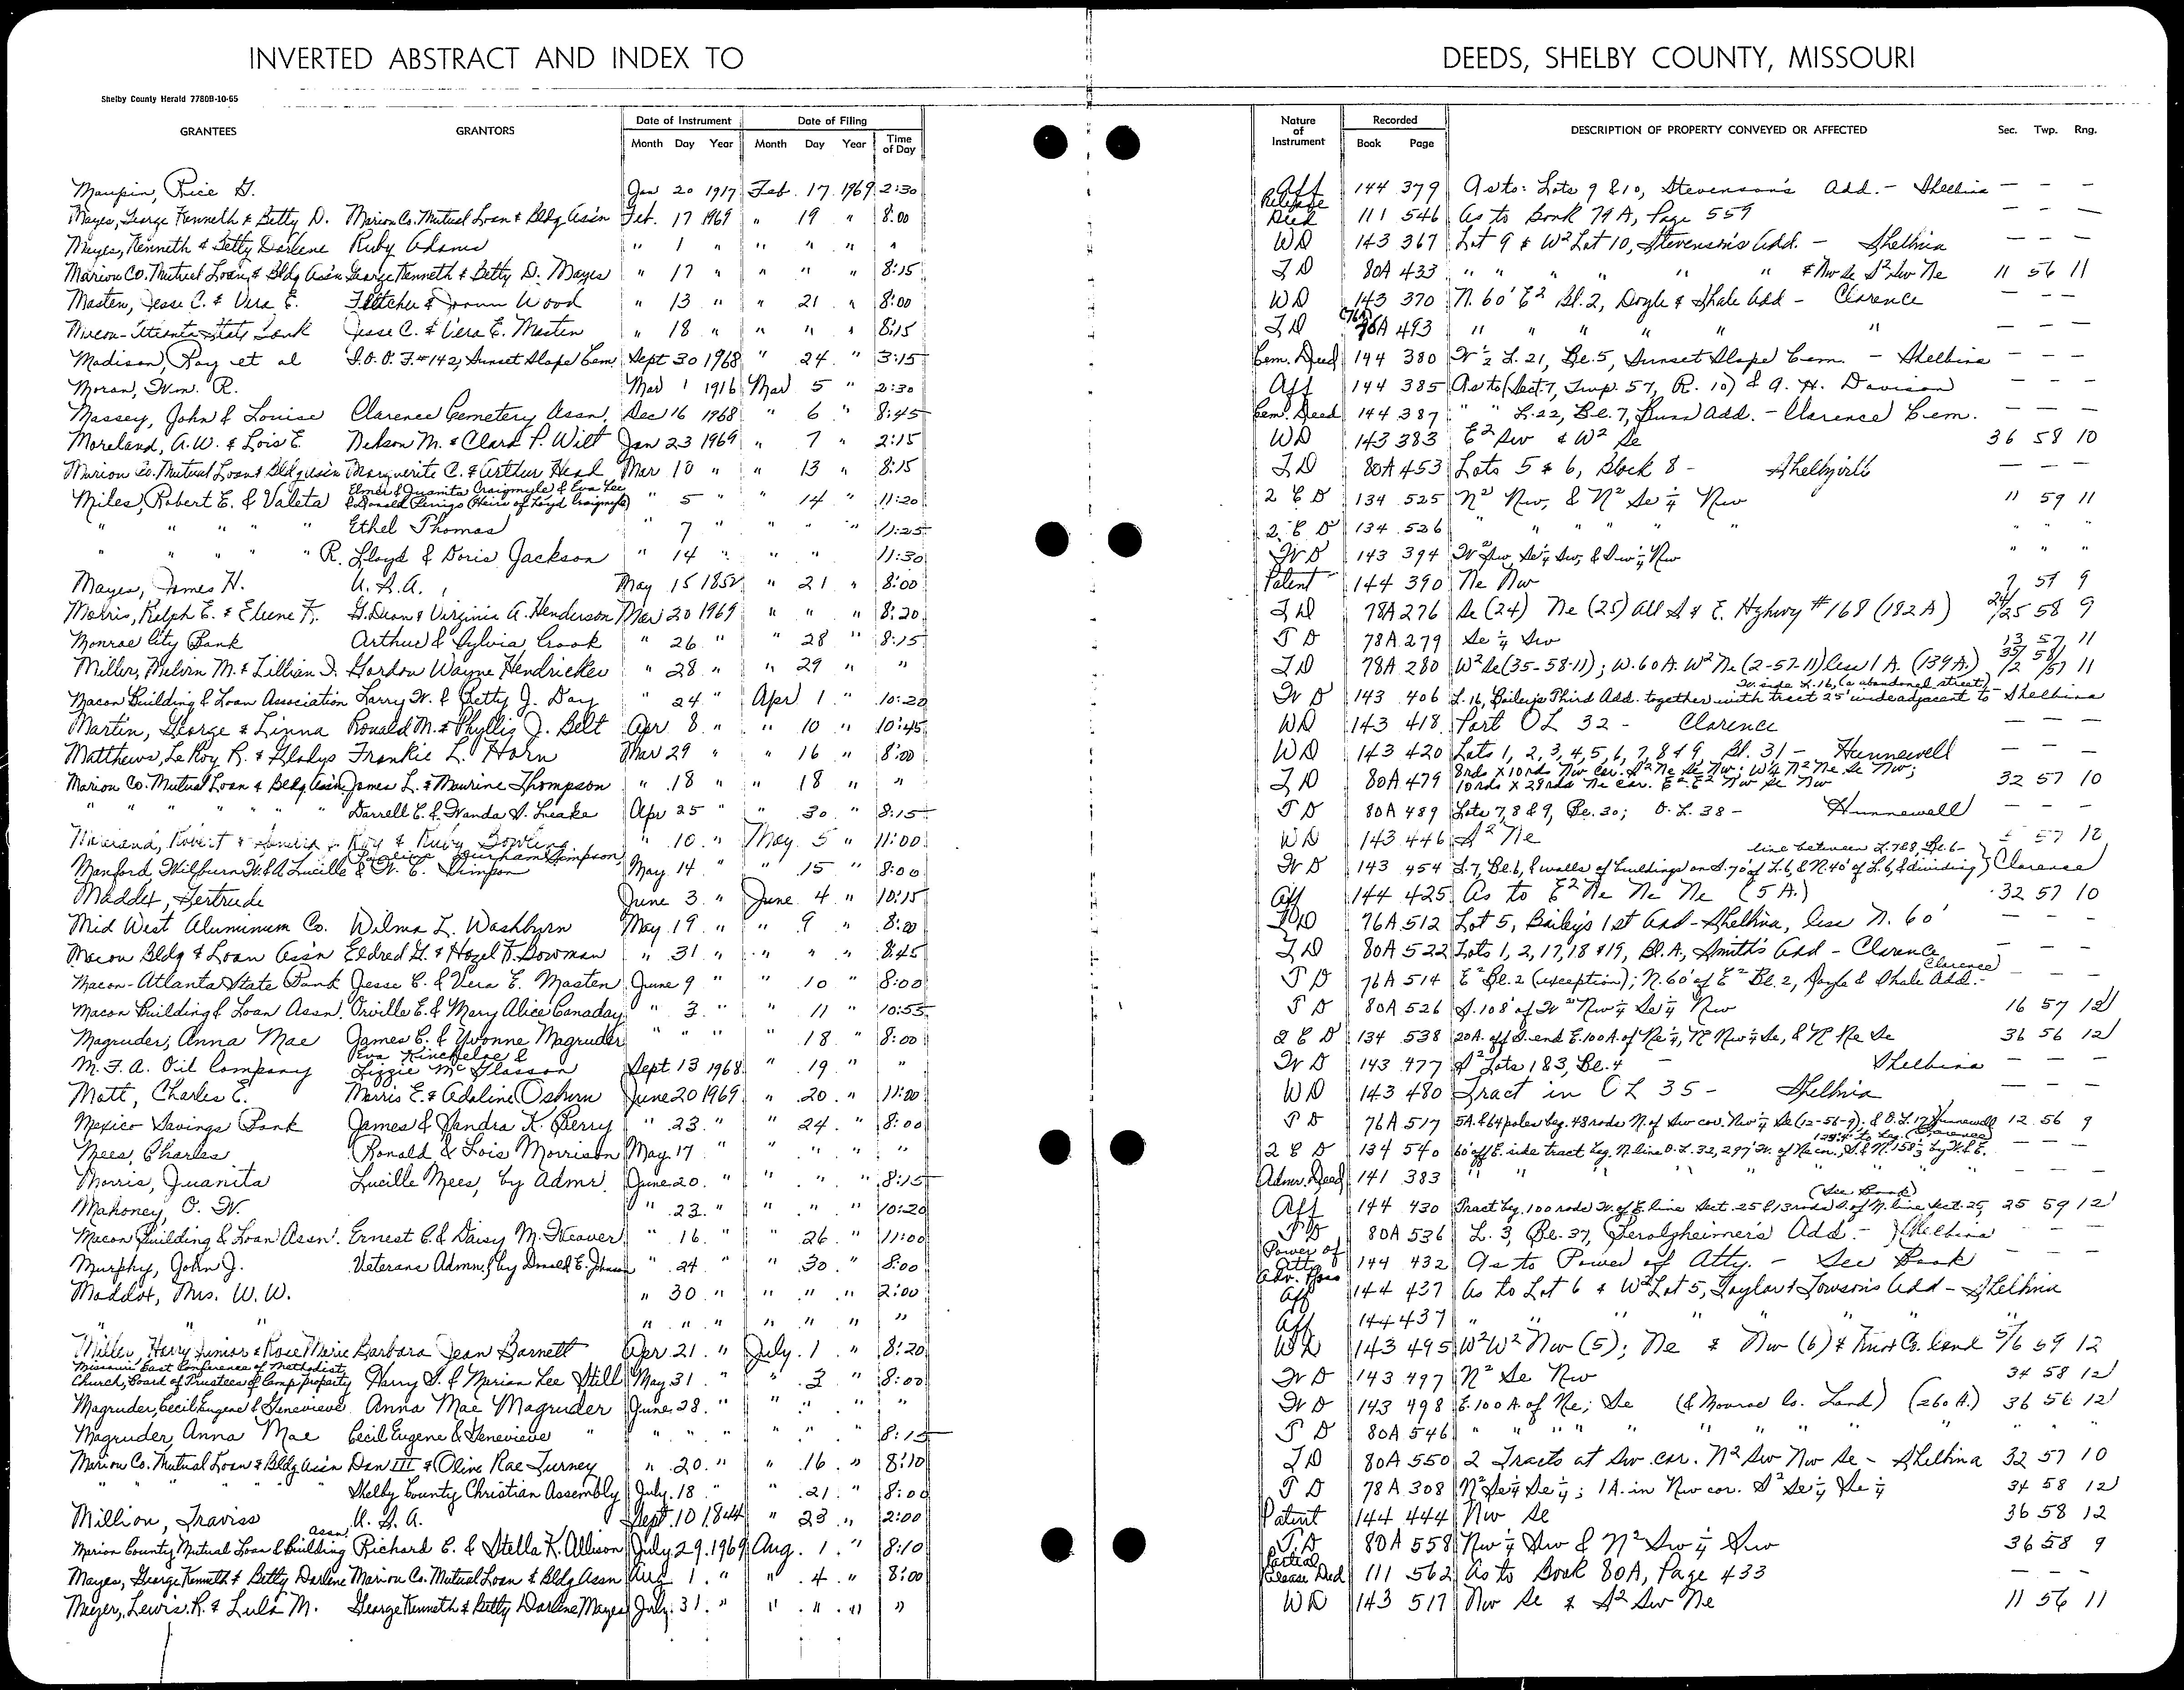 INVERTED ABSTRACT AND INDEX TO DEEDS, SHELBY COUNTY, MISSOURI
Shelby County Herald 7780B-10-65
GRANTEES GRANTORS Date of Instrument Month Day Year Date of Filing Month Day Year Time of Day Nature of Instrument Recorded Book Page DESCRIPTION OF PROPERTY CONVEYED OR AFFECTED Sec. Twp. Rng.
Maupin, Rice G. Jan 20 1917 Feb. 17 1969 2:30 Aff 144 379 As to: Lots 9 & 10, Stevenson's Add. - Shelbina — — —
Mayes, George Kenneth & Betty D. Marion Co. Mutual Loan & Bldg Ass'n Feb. 17 1969 " 19 " 8:00 Release Deed 111 546 As to Book 79A, Page 559 — — —
Mayes, Kenneth & Betty Darlene Ruby Adams " 1 " " " " " WD 143 367 Lot 9 & W² Lot 10, Stevenson's Add. - Shelbina — — —
Marion Co. Mutual Loan & Bldg Ass'n George Kenneth & Betty D. Mayes " 17 " " " " 8:15 TD 80A 433 " " " " " " & Nw Se S² Sw Ne 11 56 11
Masten, Jesse C. & Vera E. Fletcher & Wood " 13 " " 21 " 8:00 WD 143 370 N. 60' E² Bl. 2, Doyle & Shale Add - Clarence — — —
Macon-Atlanta State Bank Jesse C. & Vera E. Masten " 18 " " " " 8:15 TD (76A) 76A 493 " " " " " " — — —
Madison, Ray et al I.O.O.F. #142, Sunset Slope Cem. Sept 30 1968 " 24 " 3:15 Cem. Deed 144 380 W ½ L. 21, Bl. 5, Sunset Slope Cem. - Shelbina — — —
Moran, Wm. R. Mar 1 1916 Mar 5 " 2:30 Aff 144 385 As to (Sect. 7, Twp. 57, R. 10) & A. H. Davison — — —
Massey, John & Louise Clarence Cemetery Assn. Dec 16 1968 " 6 " 8:45 Cem. Deed 144 387 " " L. 22, Bl. 7, Bunn Add. - Clarence Cem. — — —
Moreland, A.W. & Lois E. Nelson M. & Clara P. Wilt Jan 23 1969 " 7 " 2:15 WD 143 383 E² Sw & W² Se 36 58 10
Marion Co. Mutual Loan & Bldg Ass'n Marguerite C. & Arthur Head Mar 10 " " 13 " 8:15 TD 80A 453 Lots 5 & 6, Block 8 - Shelbyville — — —
Miles, Robert E. & Valeta Elmer & Juanita Craigmyle & Eva Lee & Donald Perrigo (Heirs of Loyd Craigmyle) " 5 " " 14 " 11:20 2 C D 134 525 N² Nw, & N² Se ¼ Nw 11 59 11
" " " " Ethel Thomas " 7 " " " " 11:25 2 C D 134 526 " " " " " " " "
" " " " R. Lloyd & Doris Jackson " 14 " " " 11:30 W D 143 394 W² Sw Se¼ Sw, & Sw ¼ Nw " " "
Mayes, James H. U.S.A. May 15 1852 " 21 " 8:00 Patent 144 390 Ne Nw 7 57 9
Morris, Ralph E. & Elvene F. G. Dean & Virginia A. Henderson Mar 20 1969 " " " 8:20 TD 78A 276 Se (24) Ne (25) All S & E. Highwy #168 (182 A) 24/25 58 9
Monroe City Bank Arthur & Sylvia Crook " 26 " " 28 " 8:15 T D 78A 279 Se ¼ Sw 13 57 11
Miller, Melvin M. & Lillian I. Gordon Wayne Hendricks " 28 " " 29 " " TD 78A 280 W² Se (35-58-11); W. 60 A. W² Ne (2-57-11) less 1 A. (139 A.) 35/2 58/57 11
Macon Building & Loan Association Larry W. & Betty J. Day " 24 " Apr 1 " 10:20 W D 143 406 L. 16, Bailey's Third Add. together with tract 25' wide adjacent to W. side L. 16, (a abandoned street) - Shelbina
Martin, George & Linna Ronald M. & Phyllis J. Belt Apr 8 " " 10 " 10:45 WD 143 418 Part OL 32 - Clarence — — —
Matthews, LeRoy R. & Gladys Frankie L. Horn Mar 29 " " 16 " 8:00 WD 143 420 Lots 1, 2, 3, 4, 5, 6, 7, 8 & 9, Bl. 31 - Hunnewell — — —
Marion Co. Mutual Loan & Bldg Ass'n James L. & Maurine Thompson " 18 " " 18 " " TD 80A 479 8rds x 10rds Nw cor. S² Ne Se Nw; W¼ N² Ne Se Nw; 10rds x 29rds Ne cor. E² E² Nw Se Nw 32 57 10
" " " " Darrell C. & Wanda S. Leake Apr 25 " " 30 " 8:15 T D 80A 489 Lots 7, 8 & 9, Bl. 30; O. L. 38 - Hunnewell — — —
Moreland, Robert & Roy & Ruby Bowling " 10 " May 5 " 11:00 WD 143 446 S² Ne 57 12
Manford, Wilburn W. & A. Lucille Simpson & W. C. Simpson May 14 " " 15 " 8:00 W D 143 454 L. 7, Bl. 6, & walls of buildings on S. 70' of L. 6 & N. 40' of L. 6, & dividing line between L. 7 & 8, Bl. 6 - Clarence — — —
Maddox, Gertrude June 3 " June 4 " 10:15 Aff 144 425 As to E² Ne Ne Ne (5 A.) 32 57 10
Mid West Aluminum Co. Wilma L. Washburn May 19 " " 9 " 8:00 TD 76A 512 Lot 5, Bailey's 1st Add - Shelbina, less N. 60' — — —
Macon Bldg & Loan Ass'n Eldred G. & Hazel F. Bowman " 31 " " " " 8:45 TD 80A 522 Lots 1, 2, 17, 18 & 19, Bl. A, Smith's Add - Clarence — — —
Macon-Atlanta State Bank Jesse C. & Vera E. Masten June 9 " " 10 " 8:00 T D 76A 514 E² Bl. 2 (exception); N. 60' of E² Bl. 2, Doyle & Shale Add. - Clarence — — —
Macon Building & Loan Assn. Orville E. & Mary Alice Canaday " 3 " " 11 " 10:55 T D 80A 526 S. 108' of W² Nw ¼ Se ¼ Nw 16 57 12
Magruder, Anna Mae James C. & Yvonne Magruder " " " " 18 " 8:00 2 C D 134 538 20A. off S. end E. 100 A. of Ne ¼, N² Nw ¼ Se, & N² Ne Se 36 56 12
M. F. A. Oil Company Eva Kincheloe & Lizzie McGlasson Sept 13 1968 " 19 " " W D 143 477 S² Lots 1 & 3, Bl. 4 - Shelbina — — —
Matt, Charles E. Morris E. & Adaline Osburn June 20 1969 " 20 " 11:00 WD 143 480 Tract in OL 35 - Shelbina — — —
Mexico Savings Bank James & Sandra K. Perry " 23 " " 24 " 8:00 T D 76A 517 5A. & 64 poles beg. 48 rods N. of Sw cor. Nw ¼ Se (12-56-9); & O.L. 17 Hunnewell 12 56 9
Mees, Charles Ronald & Lois Morrison May 17 " " " " " 2 C D 134 540 60' off E. side tract beg. N. line O. L. 32, 297' W. of Ne cor., (Clarence) — — —
Morris, Juanita Lucille Mees, by Admr. June 20 " " " " 8:15 Admr. Deed 141 383 " " " " " — — —
Mahoney, O. W. " 23 " " " " 10:20 Aff 144 430 Tract beg. 100 rods W. of E. line Sect. 25 & 13 rods S. of N. line Sect. 25, (See Book) 25 59 12
Macon Building & Loan Assn. Ernest C. & Daisy M. Weaver " 16 " " 26 " 11:00 T D 80A 536 L. 3, Bl. 37, Gerolzheimer's Add. - Shelbina — — —
Murphy, John J. Veterans Admn., by Donald E. Johnson " 24 " " 30 " 8:00 Power of Atty 144 432 As to Power of Atty. - See Book — — —
Maddox, Mrs. W. W. " 30 " " " " 2:00 Adv. Poss Aff 144 437 As to Lot 6 & W² Lot 5, Taylor & Towson's Add - Shelbina
" " " " " " " " " " Aff 144 437 " " " " " "
Miller, Harry Junior & Rose Marie Barbara Jean Barnett Apr 21 " July 1 " 8:20 WD 143 495 W² W² Nw (5); Ne & Nw (6) & Knox Co. Land 5/6 59 12
Missouri East Conference of Methodist Church, Board of Trustees of Camp Property Harry S. & Marian Lee Still May 31 " " 3 " 8:00 W D 143 497 N² Se Nw 34 58 12
Magruder, Cecil Eugene & Genevieve Anna Mae Magruder June 28 " " " " " W D 143 498 E. 100 A. of Ne; Se (& Monroe Co. Land) (260 A.) 36 56 12
Magruder, Anna Mae Cecil Eugene & Genevieve " " " " " " " 8:15 T D 80A 546 " " " " " " " " " " "
Marion Co. Mutual Loan & Bldg Ass'n Dan III & Olive Rae Turney " 20 " " 16 " 8:10 TD 80A 550 2 Tracts at Sw cor. N² Sw Nw Se - Shelbina 32 57 10
" " " " Shelby County Christian Assembly July 18 " " 21 " 8:00 T D 78A 308 N² Se ¼ Se ¼; 1A. in Nw cor. S² Se ¼ Se ¼ 34 58 12
Million, Traviss U. S. A. Sept. 10 1844 " 23 " 2:00 Patent 144 444 Nw Se 36 58 12
Marion County Mutual Loan & Building Assn. Richard C. & Stella K. Allison July 29 1969 Aug. 1 " 8:10 T.D 80A 558 Nw ¼ Sw & N² Sw ¼ Sw 36 58 9
Mayes, George Kenneth & Betty Darlene Marion Co. Mutual Loan & Bldg Assn Aug 1 " " 4 " 8:00 Partial Release Deed 111 562 As to Book 80A, Page 433 — — —
Meyer, Lewis R. & Lula M. George Kenneth & Betty Darlene Mayes July 31 " " " " " WD 143 517 Nw Se & S² Sw Ne 11 56 11